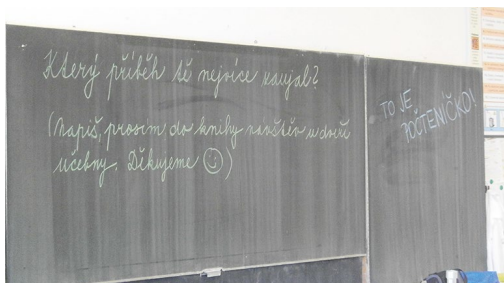 Který příběh tě nejvíce zaujal?
(Napiš, prosím do knihy návštěv u dveří
učebny. Děkujeme ☺)
TO JE
POČTENÍČKO!